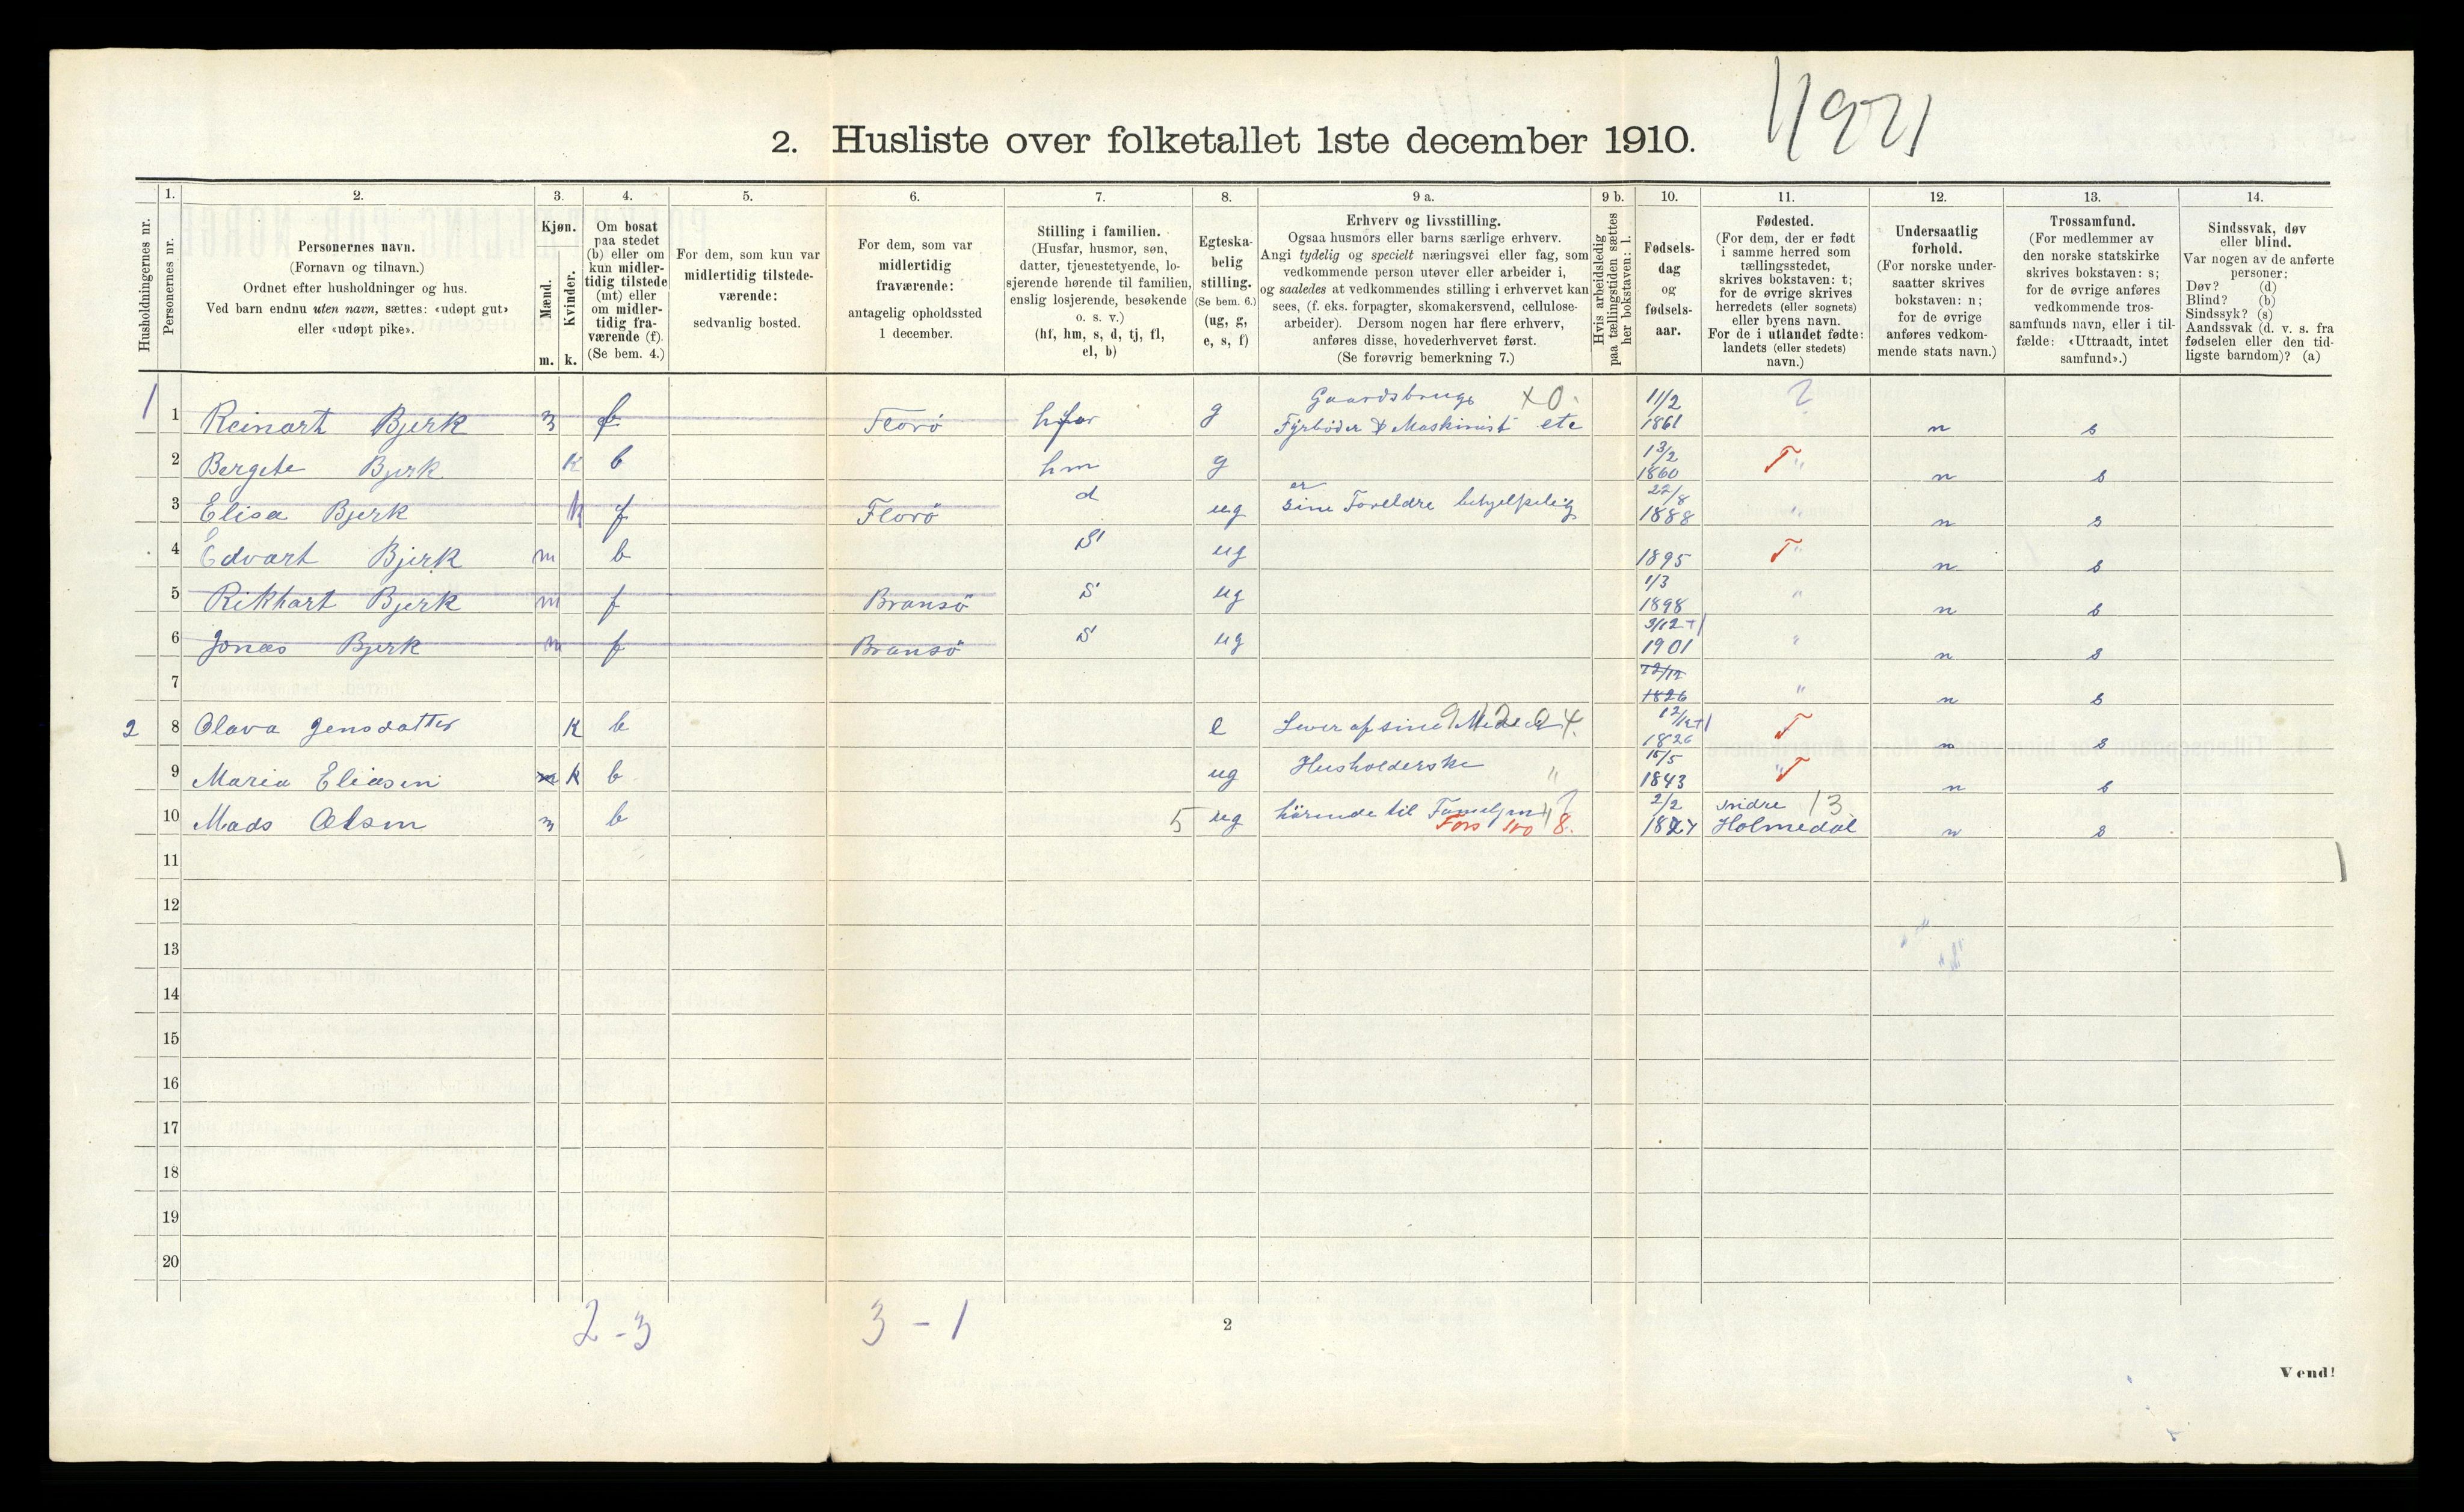 2. Husliste over folketallet 1ste december 1910.
Husholdningernes nr.
1.
Personernes nr.
2.
Personernes navn.
(Fornavn og tilnavn.)
Ordnet efter husholdninger og hus.
Ved barn endnu uten navn, sættes: «udøpt gut»
eller «udøpt pike».
3.
Kjøn.
Mænd.
Kvinder.
m. k.
4.
Om bosat
paa stedet
(b) eller om
kun midler-
tidig tilstede
(mt) eller
om midler-
tidig fra-
værende (f).
(Se bem. 4.)
5.
For dem, som kun var
midlertidig tilstede-
værende:
sedvanlig bosted.
6.
For dem, som var
midlertidig
fraværende:
antagelig opholdssted
1 december.
7.
Stilling i familien.
(Husfar, husmor, søn,
datter, tjenestetyende, lo-
sjerende hørende til familien,
enslig losjerende, besøkende
o. s. v.)
(hf, hm, s, d, tj, fl,
el, b)
8.
Egteska-
belig
stilling.
(Se bem. 6.)
(ug, g,
e, s, f)
9 a.
Erhverv og livsstilling.
Ogsaa husmors eller barns særlige erhverv.
Angi tydelig og specielt næringsvei eller fag, som
vedkommende person utøver eller arbeider i,
og saaledes at vedkommendes stilling i erhvervet kan
sees, (f. eks. forpagter, skomakersvend, cellulose-
arbeider). Dersom nogen har flere erhverv,
anføres disse, hovederhvervet først.
(Se forøvrig bemerkning 7.)
9 b.
Hvis arbeidsledig
paa tællingstiden sættes
her bokstaven: l.
10.
Fødsels-
dag
og
fødsels-
aar.
11.
Fødested.
(For dem, der er født
i samme herred som
tællingsstedet,
skrives bokstaven: t;
for de øvrige skrives
herredets (eller sognets)
eller byens navn.
For de i utlandet fødte:
landets (eller stedets)
navn.)
12.
Undersaatlig
forhold.
(For norske under-
saatter skrives
bokstaven: n;
for de øvrige
anføres vedkom-
mende stats navn.)
13.
Trossamfund.
(For medlemmer av
den norske statskirke
skrives bokstaven: s;
for de øvrige anføres
vedkommende tros-
samfunds navn, eller i til-
fælde: «Uttraadt, intet
samfund».)
14.
Sindssvak, døv
eller blind.
Var nogen av de anførte
personer:
Døv? (d)
Blind? (b)
Sindssyk? (s)
Aandssvak (d. v. s. fra
fødselen eller den tid-
ligste barndom)? (a)
1 1 Reinart Bjerk m f Florö hfar g Gaardsbrug XO
Fyrböder & Maskinist etc 11/2 1861 ? n s
2 Bergete Bjerk k b hm g 13/2 1860 T " n s
3 Elisa Bjerk k f Florö d ug er sine Foreldre behjelpelig 22/8 1888 " n s
4 Edvart Bjerk m b S ug 1895 T " n s
5 Rikhart Bjerk m f Bransö S ug 1/3 1898 " n s
6 Jonas Bjerk m f Bransö S ug 3/12 1901 " n s
7 1826 " n s
2 8 Olava Jensdatter k b e Lever af sine Midler 12/12 1826 T n s
9 Maria Eliasen k b ug Husholderske " 15/5 1843 " T n s
10 Mads Olsen m b 5 ug hörende til Familjen 2/2 18 indre 13
Fors 100 8. Holmedal n s
11
12
13
14
15
16
17
18
19
20
2 - 3 3 - 1
2
Vend!